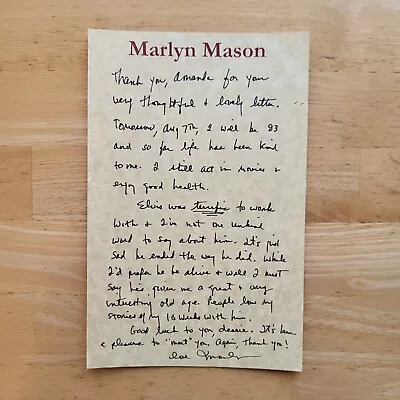 Marlyn Mason
Thank you, Amanda for your
very thoughtful & lovely letter.
Tomorrow, Aug 7th, I will be 83
and so far life has been kind
to me. I still act in movies &
enjoy good health.
Elvis was terrific to work
with & I'm not one unkind
word to say about him. It's just
sad he ended the way he did. While
I'd prefer he be alive & well I must
say he's given me a great & very
interesting old age. People love my
stories of my 18 weeks with him.
Good luck to you, dearie. It's been
a pleasure to "meet" you. Again, thank you!